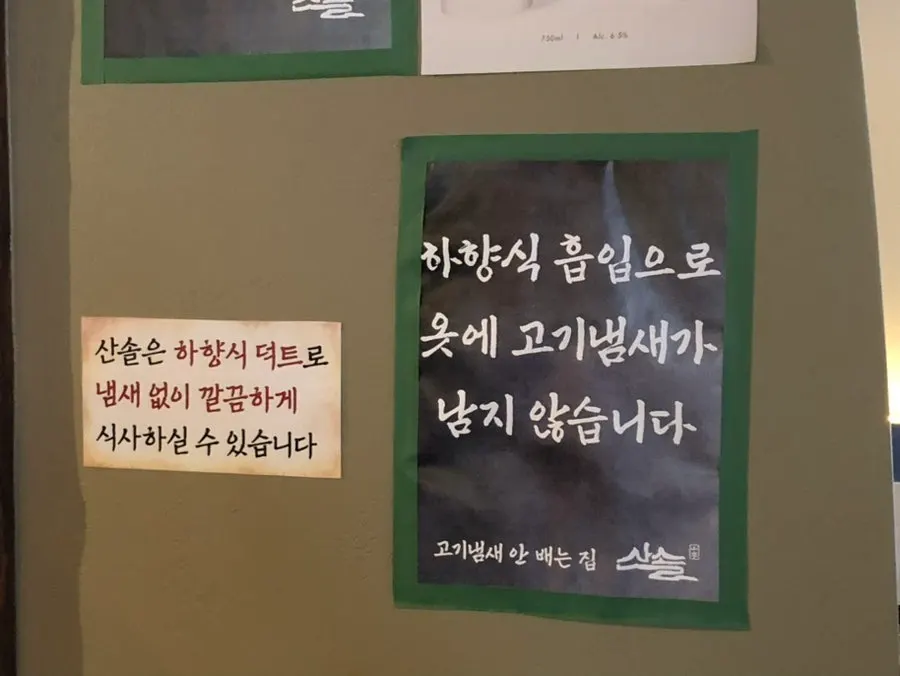 산솔
750ml | Alc. 6.5%
하향식 흡입으로
옷에 고기냄새가
남지 않습니다
고기냄새 안 배는 집 산솔
산솔은 하향식 덕트로
냄새 없이 깔끔하게
식사하실 수 있습니다